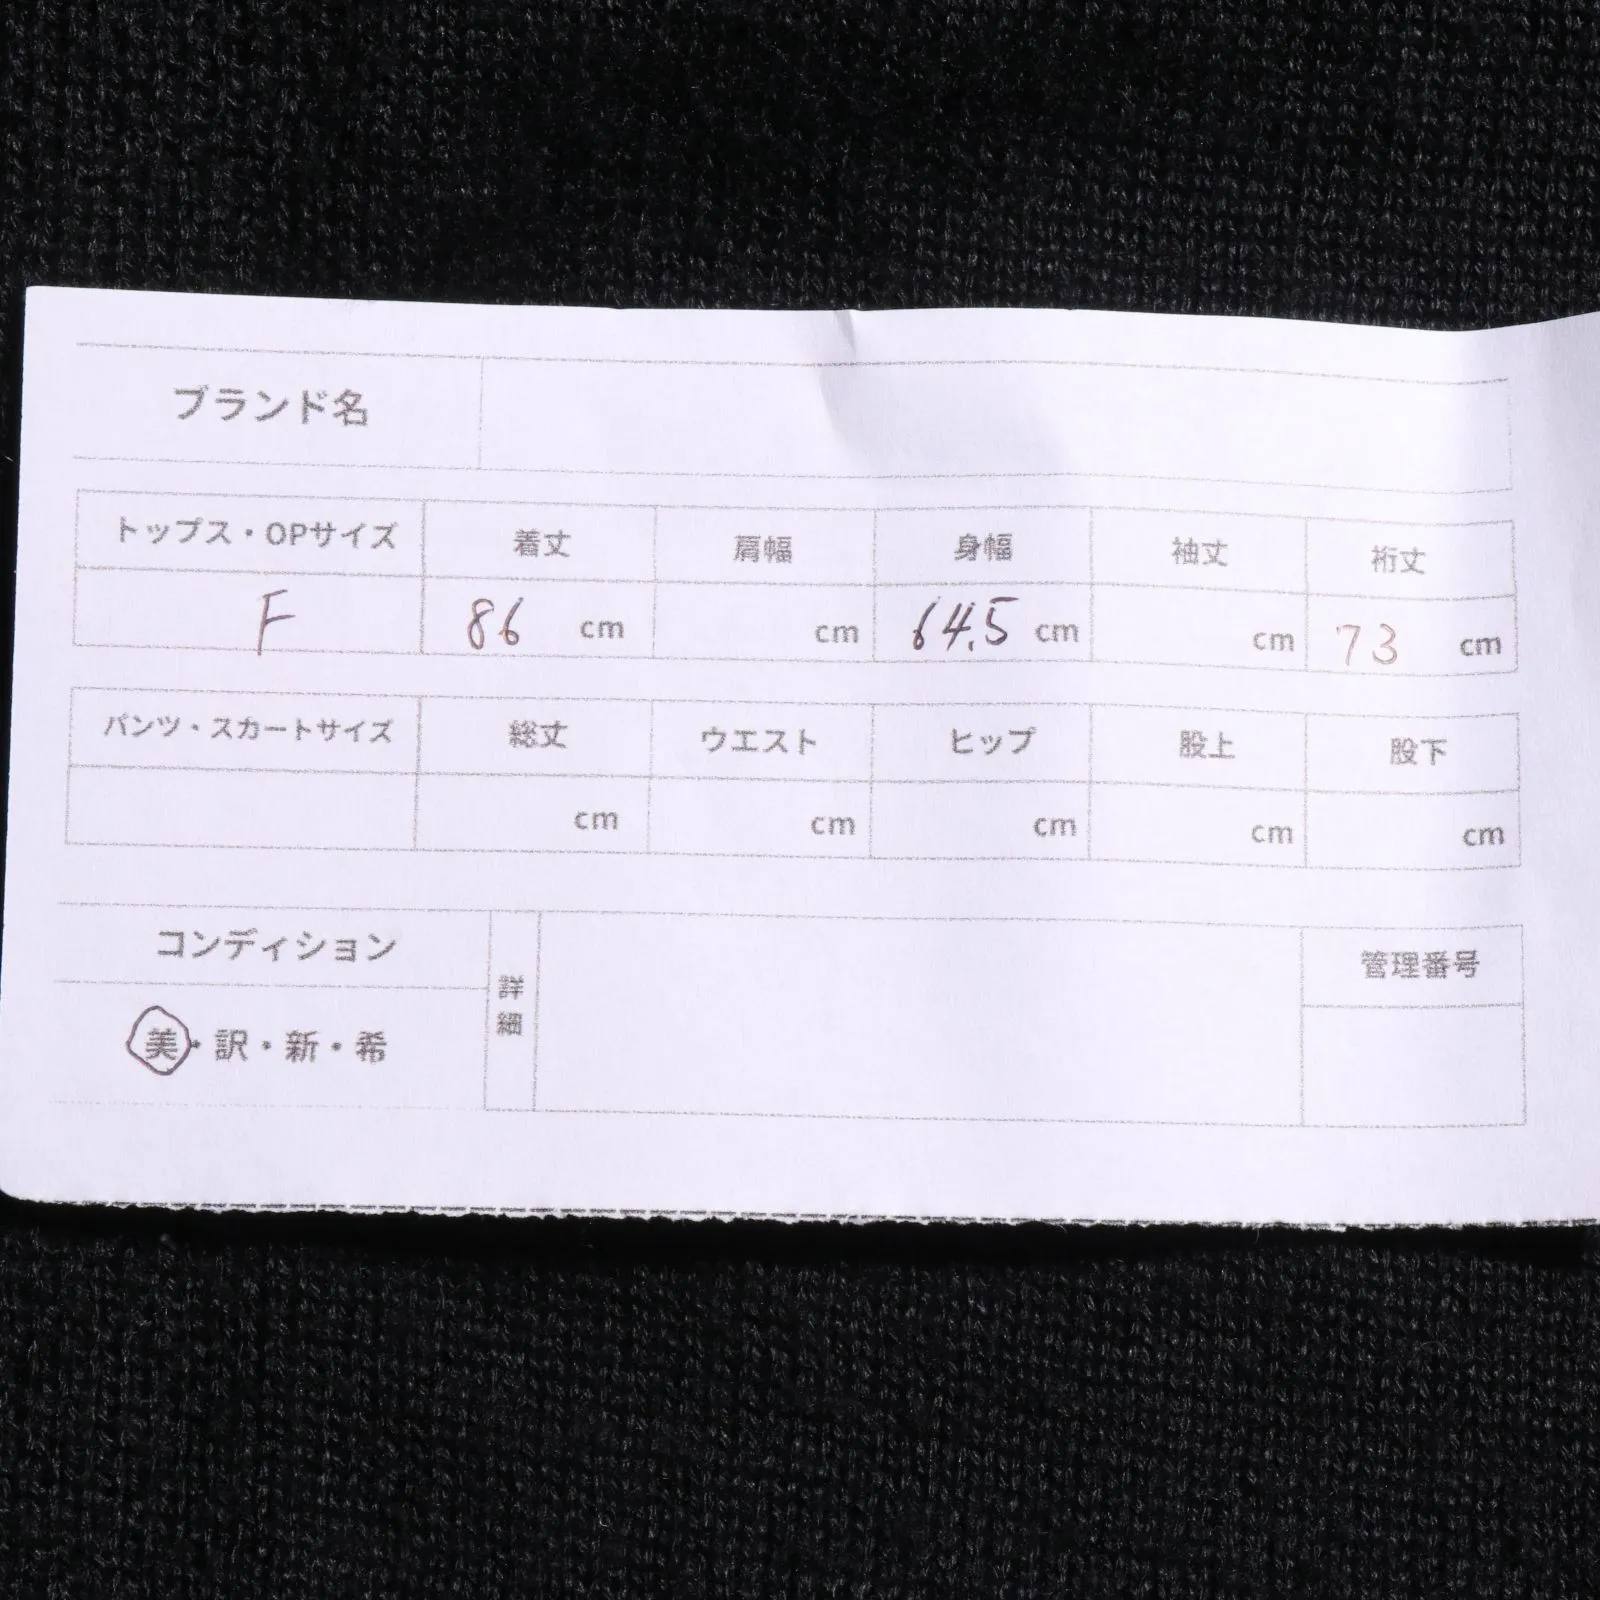 ブランド名
トップス・OPサイズ 着丈 肩幅 身幅 袖丈 裄丈
F 86 cm cm 64.5 cm cm 73 cm
パンツ・スカートサイズ 総丈 ウエスト ヒップ 股上 股下
cm cm cm cm cm
コンディション 詳細 管理番号
美・訳・新・希